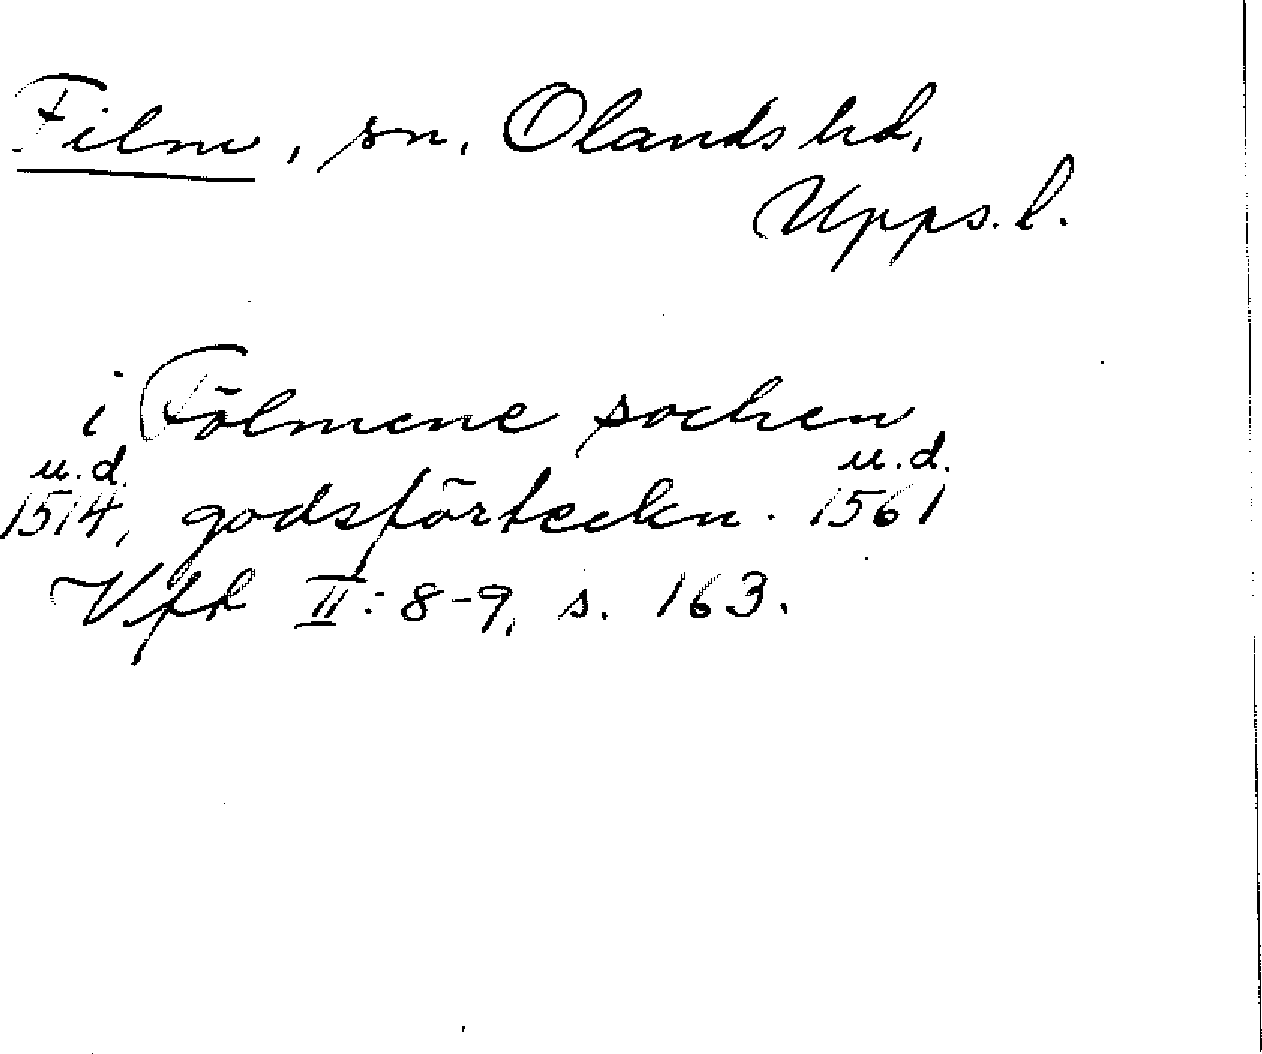 Film, sn, Olands hd,
Upps. l.
i Fölmene sochen
u.d. u.d.
1514, godsförteckn. 1561
Vfr II: 8-9, s. 163.